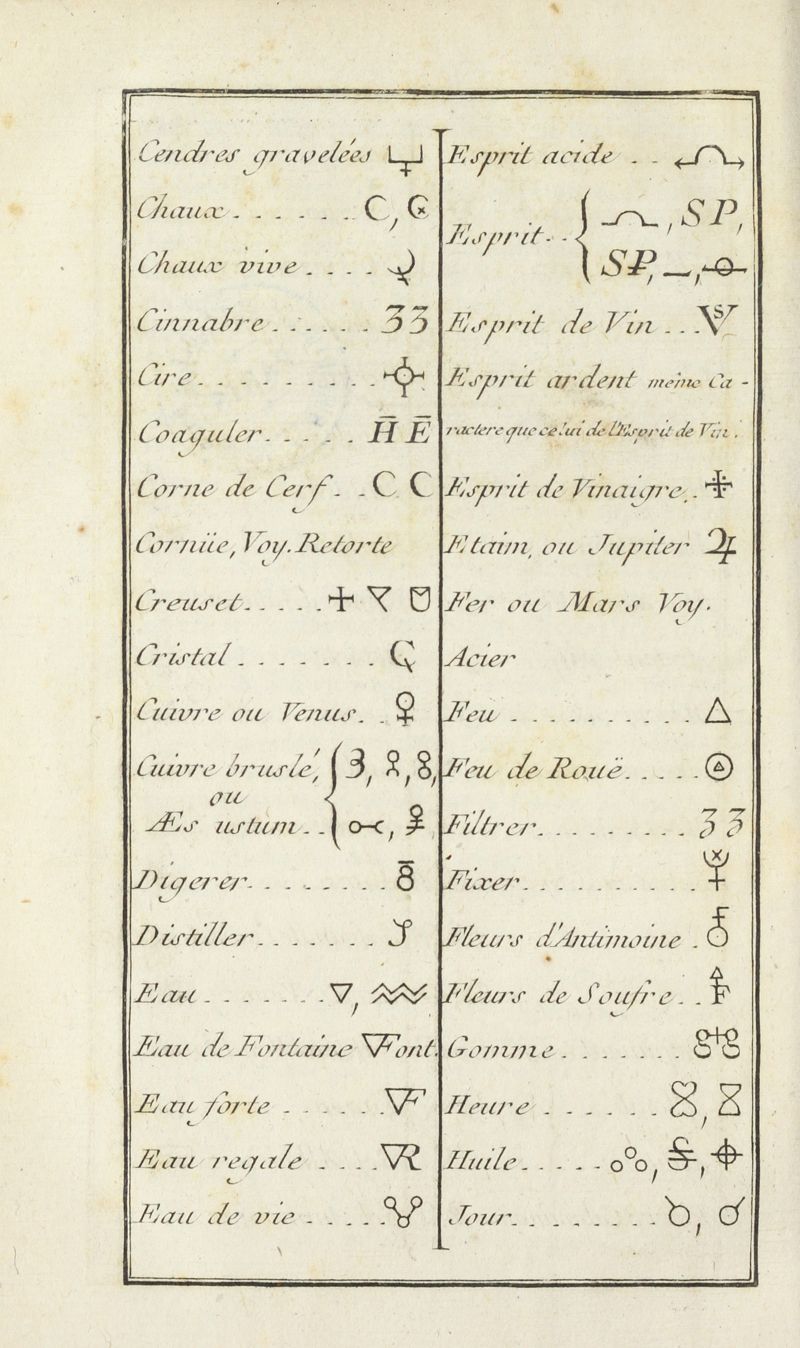 Cendres gravelées
Chaux
Chaux vive
Cinnabre
Cire
Coaguler H E
Corne de Cerf C C
Cornüe, Voy. Retorte
Creuset
Cristal
Cuivre ou Venus ♀
Cuivre bruslé,
ou
Æs ustum
Digerer
Distiller
Eau ▽
Eau de Fontaine ▽Font.
Eau forte ▽F
Eau regale ▽R
Eau de vie
Esprit acide
Esprit SP,
SP,
Esprit de Vin
Esprit ardent même Ca-
ractere que celui de l'Esprit de Vin.
Esprit de Vinaigre
Etaim, ou Jupiter ♃
Fer ou Mars Voy.
Acier
Feu △
Feu de Rouë
Filtrer
Fixer
Fleurs d'Antimoine
Fleurs de Soufre
Gomme
Heure
Huile
Jour